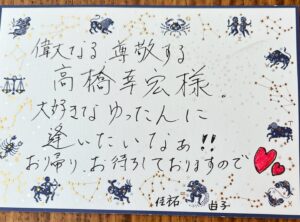 偉大なる 尊敬する
高橋幸宏様。
大好きなゆったんに
逢いたいなぁ!!
お帰り、お待ちしておりますので
佳祐 由子